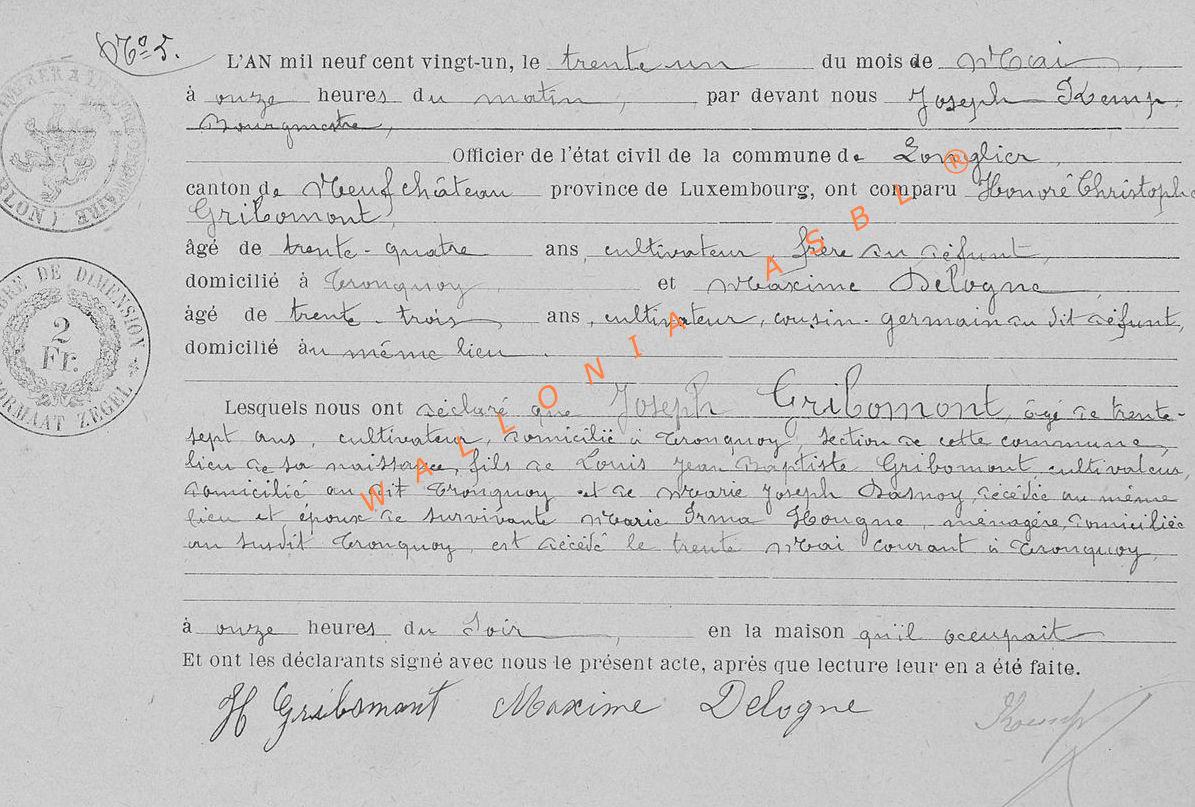 No 5.
L'AN mil neuf cent vingt-un, le trente un du mois de Mai,
à onze heures du matin, par devant nous Joseph Kemp,
Bourgmestre,
Officier de l'état civil de la commune de Longlier,
canton de Neufchâteau province de Luxembourg, ont comparu Honoré Christophe
Gribomont,
âgé de trente-quatre ans, cultivateur, frère du défunt,
domicilié à Tronquoy, et Maxime Delogne,
âgé de trente-trois ans, cultivateur, cousin-germain du dit défunt,
domicilié au même lieu.
Lesquels nous ont déclaré que Joseph Gribomont, âgé de trente-
sept ans, cultivateur, domicilié à Tronquoy, section de cette commune,
lieu de sa naissance, fils de Louis Jean Baptiste Gribomont, cultivateur,
domicilié au dit Tronquoy et de Marie Joseph Dasnoy, décédée au même
lieu et époux de survivante Marie Irma Hougne, ménagère, domiciliée
au susdit Tronquoy, est décédé le trente Mai courant à Tronquoy,
à onze heures du soir, en la maison qu'il occupait
Et ont les déclarants signé avec nous le présent acte, après que lecture leur en a été faite.
H Gribomont Maxime Delogne Kemp
TIMBRE DE DIMENSION
2
Fr.
FORMAAT ZEGEL
WALLONIA ASBL ®